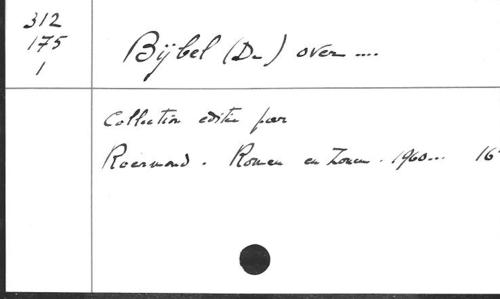 312
175
1
Bijbel (De) over ....
Collection editée par
Roermond. Romen en Zonen. 1960... 16